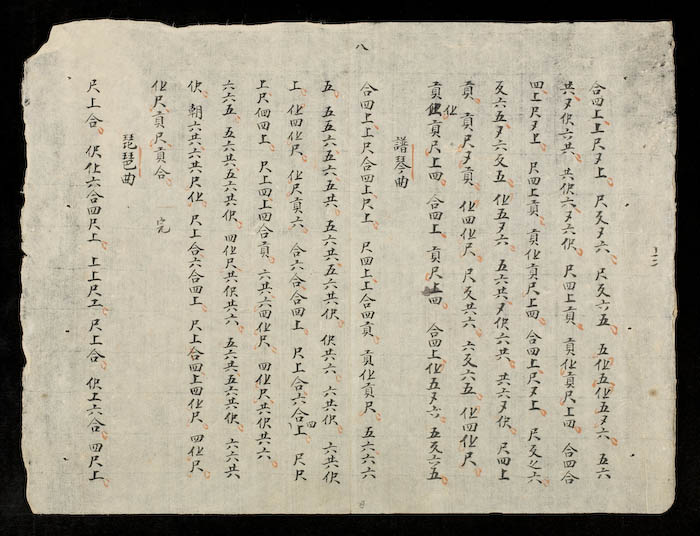 八
合四上上尺歹上 尺亥歹六 尺亥六五 五化五化五歹六 五六
共歹伬六共 共伬六歹六伬 尺四上貢 貢化貢尺上四 合四合
四上尺歹上 尺四上貢 貢化貢尺上四 合四上尺歹上 尺亥之六
亥六五歹六亥五 化五歹六 五六共歹伬六共 共六歹伬 尺四上
貢 貢尺歹貢 化四化尺 尺亥共六 六亥六五 化四化尺
貢化貢尺上四 合四上 貢尺上四 合四上化五歹六 五亥六五
譜琴曲
合四上上尺合四上尺上 尺四上上合四貢 貢化貢尺 五六六六
五 五五六五六五共 五六五六共伬 伬共六 六共伬
上 化四化尺 化尺貢六 合六合合四上 尺上合六合四上 尺尺
上尺四四上 尺上四上四合貢 六共六四化尺 四化尺共伬共六
六六五 五六共五六共伬 四化尺共伬共六 五六共五六共伬 六六共
伬 朝六共六共尺化 尺上合六合四上 尺上合四上四化尺 四化尺
化尺貢尺貢合 完
琵琶曲
尺上合 伬化六合四尺上 上上尺工 尺上合 伬上六合 四尺上